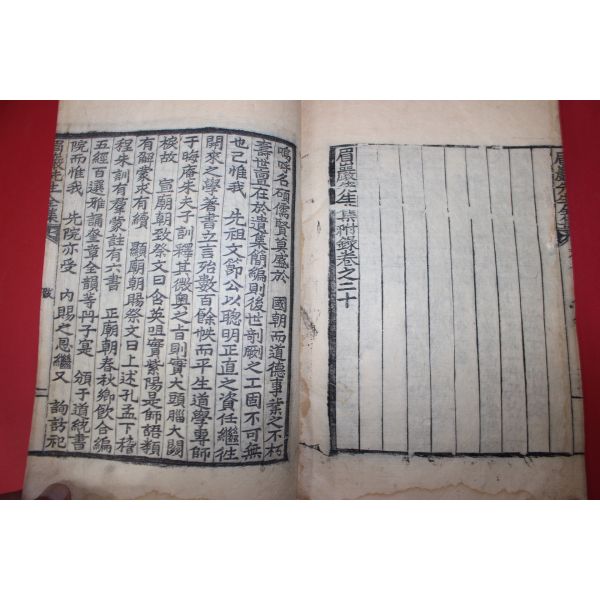 眉巖先生集附錄卷之二十
嗚呼名碩儒賢莫盛於 國朝而道德事業之不朽
壽世亶在於遺集簡編則後世剞劂之工固不可無
也已惟我 先祖文節公以聰明正直之資任繼往
開來之學著書立言殆數百餘帙而平生道學專師
子晦庵朱夫子訓釋其微奧之旨則實大頭腦大關
棙故 宣廟朝致祭文曰含英咀實紫陽是師語類
有解蒙求有續 顯廟朝賜祭文曰上述孔孟下稽
程朱訓有羣蒙註有六書 正廟朝春秋鄕飮合編
五經百選雅誦奎章全韻等冊子寔 頒于道統書
院而惟我 先院亦受 內賜之恩繼又 詢訪祀
眉巖先生全集
跋